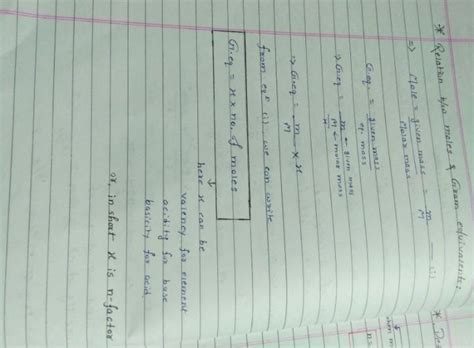 * Relation b/w moles & Gram equivalentes.
⇒ Mole = given mass / Molar mass = m / M (i)
G.eq = given mass / eq. mass
⇒ G.eq = m ← given mass / M ← molar mass / x
⇒ G.eq = m / M × x
from eqⁿ (i), we can write
G.eq = x × no. of moles
↓
here x can be
valency for element
acidity for base
basicity for acid
or, in short x is n-factor